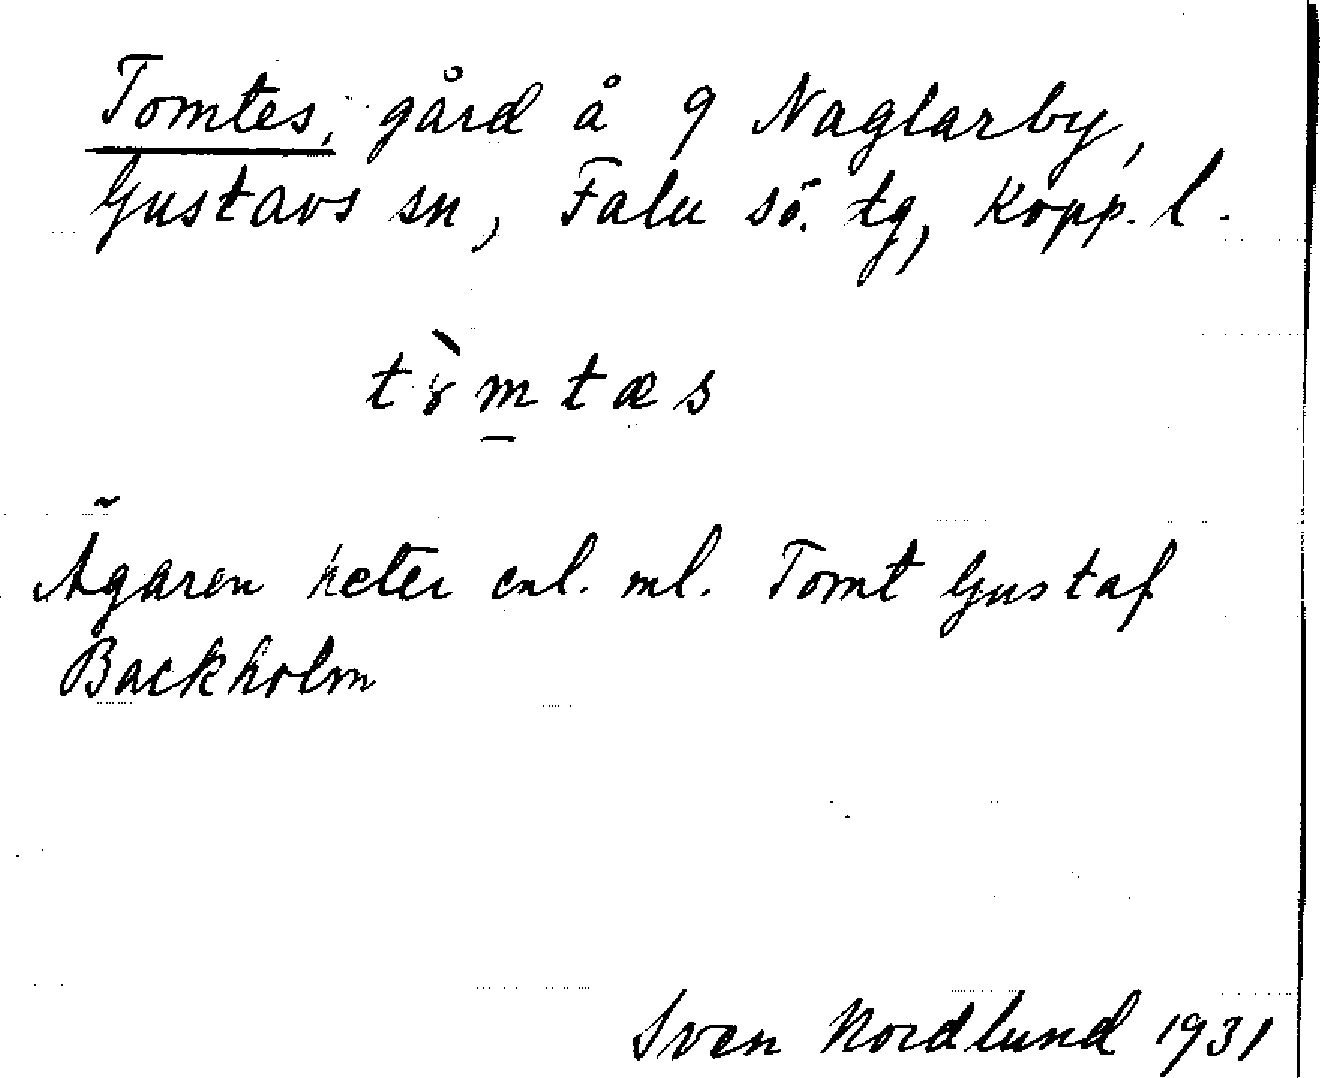 Tomtes, gård å 9 Naglarby,
Gustavs sn, Falu sö. tg, Kopp. l.
tòmtæs
Ägaren heter enl. ml. Tomt Gustaf
Backholm
Sven Nordlund 1931